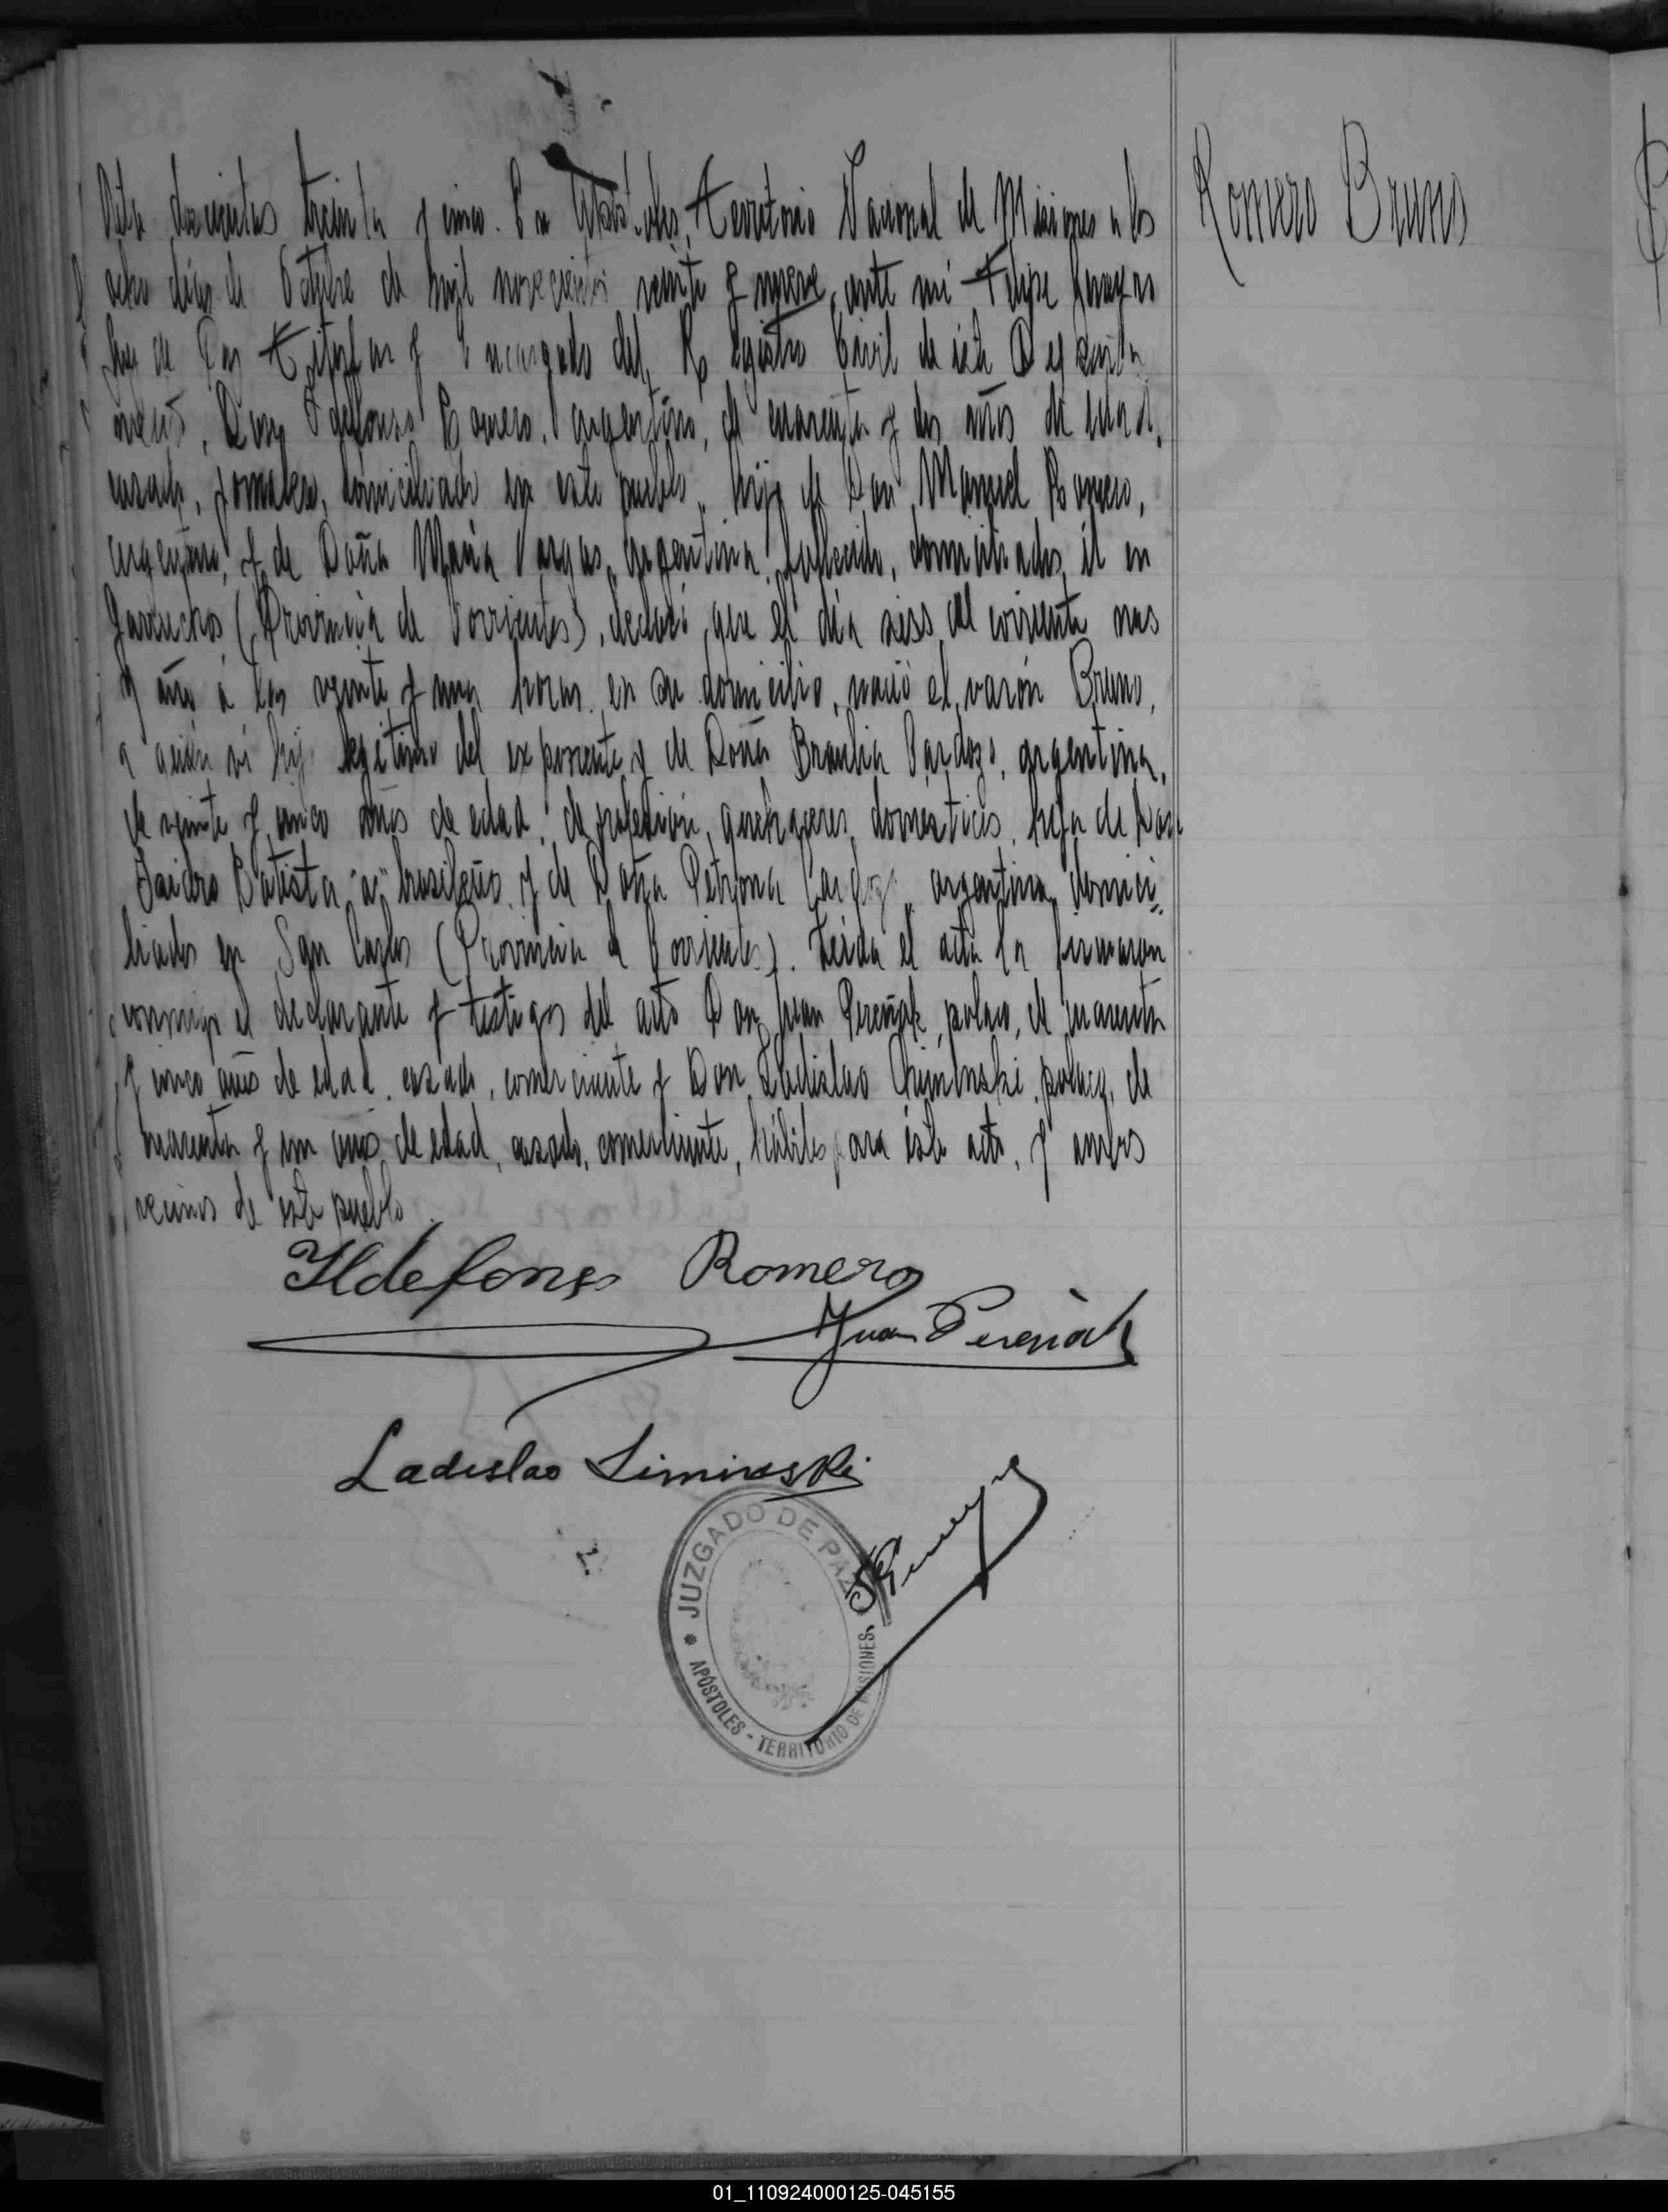 Romero Bruno
Acta doscientos treinta y cinco. En Apóstoles, Territorio Nacional de Misiones a los
ocho días de Octubre de mil novecientos veinte y nueve, ante mi Felipe
Juez de Paz Titular y Encargado del Registro Civil de esta
Don Ildefonso Romero, argentino, de cuarenta y dos años de edad,
casado, jornalero, domiciliado en este pueblo, hijo de Don Manuel Romero,
argentino, y de Doña María Vargas, argentina, fallecida, domiciliado él en
Garruchos (Provincia de Corrientes), declaró que el día seis del corriente mes
y año á las veinte y una horas en su domicilio, nació el varón Bruno,
a quien vi hijo legitimo del exponente y de Doña Braulia Cardozo, argentina,
de veinte y cinco años de edad, de profesión, quehaceres domésticos, hija de Don
Isidro Batista "a" brasileño, y de Doña Petrona Cardozo argentina, domici-
liados en San Carlos (Provincia de Corrientes). Leida el acta la firmaron
conmigo el declarante y testigos del acto Don Juan Pereñak, polaco, de cuarenta
y cinco años de edad, casado, comerciante y Don Ladislao polaco, de
cuarenta y un años de edad, casado, comerciante, hábiles para éste acto, y ambos
vecinos de este pueblo.
Ildefonso Romero
Juan Pereñak
Ladislao Siminski
JUZGADO DE PAZ
APÓSTOLES - TERRITORIO DE MISIONES
01_110924000125-045155